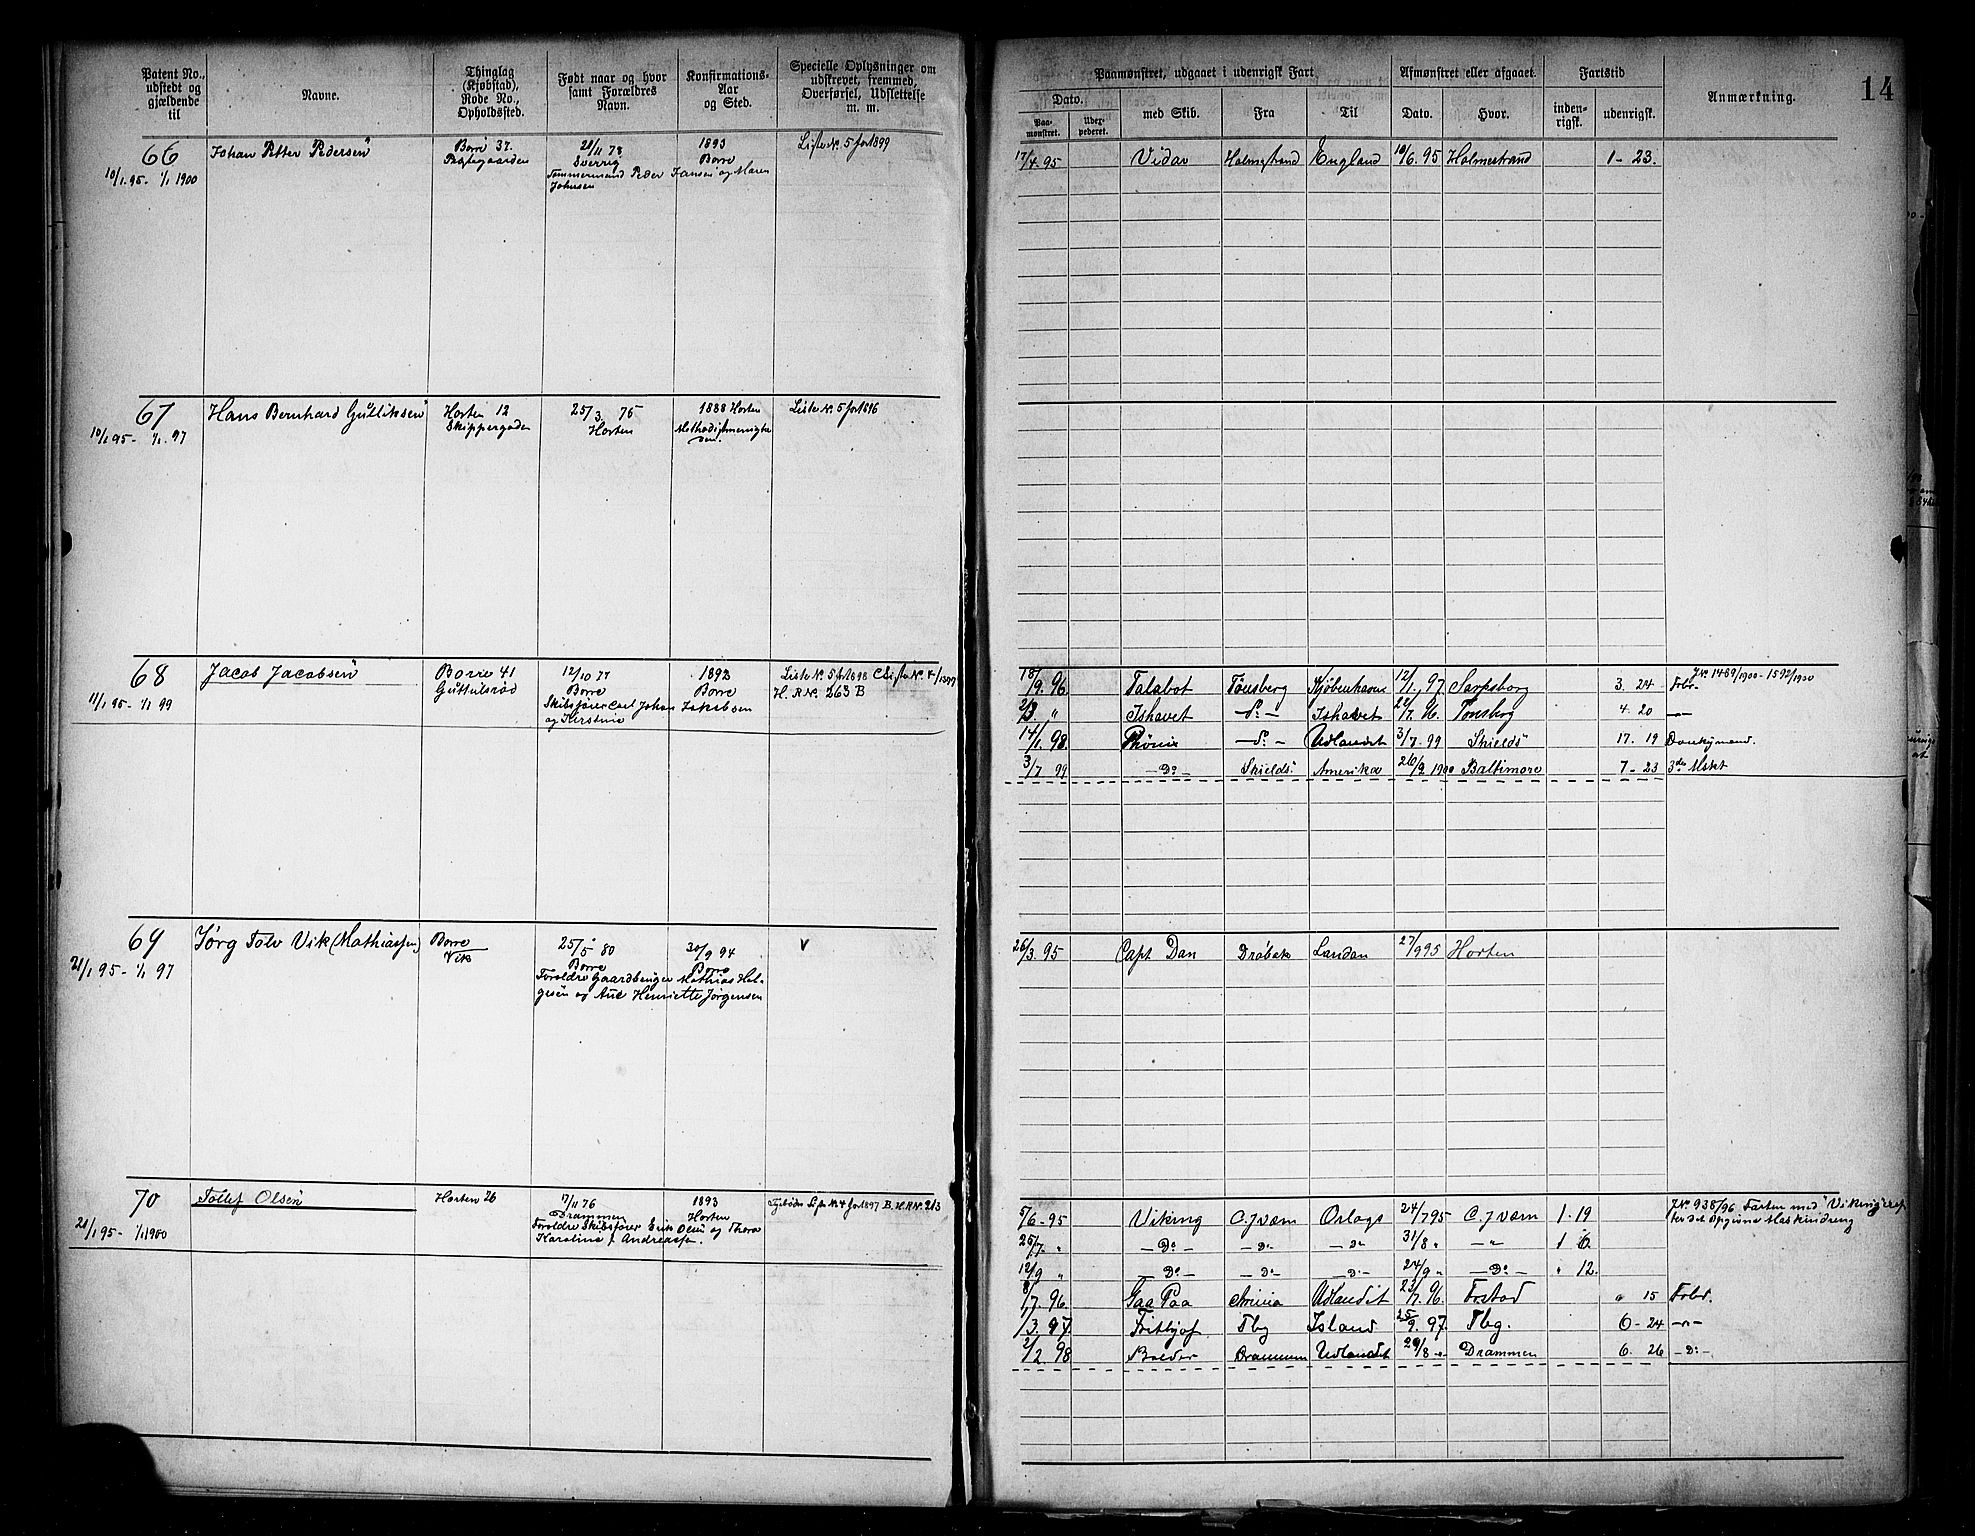 Patent No.,
udstedt og
gjældende
til
Navne.
Thinglag
(Kjøbstad),
Rode No.,
Opholdssted.
Født naar og hvor
samt Forældres
Navn.
Konfirmations-
Aar
og Sted.
Specielle Oplysninger om
udskrevet, fremmed,
Overførsel, Udslettelse
m. m.
Paamønstret, udgaaet i udenrigsk Fart
Dato.
Paa-
mønstret.
med Skib.
Fra
Til
Afmønstret eller afgaaet.
Dato.
Hvor.
Fartstid
inden-
rigsk.
udenrigsk.
Anmærkning.
14
66
10/1 95 - 1/1 1900
Johan Petter Pedersen
Borre 37.
21/11 78
Sverrig
Tømmermand Peder Jansen og Maren
Johnsen
1893
Borre
Liste No. 5 for 1899
17/4. 95
Vidar
Holmestrand
England
10/6. 95
Holmestrand
1 - 23.
67
10/1 95 - 1/1 97
Hans Bernhard Gulliksen
Horten 12
Skippergaden
25/3 75
Horten
1888 Horten
Methodistmenigheden.
Liste No. 5 for 1896
68
11/1 95 - 1/1 99
Jacob Jacobsen
Borre 41
12/10 77
Borre
Skibsfører Carl Johan Jakobsen
og Kirstine
1892
Borre
Liste No. 5 for 1898
H. R No. 263 B
18/9. 96
Talabot
Tønsberg
Kjøbenhavn
12/1. 97
Sarpsborg
3. 24
Frbr.
J.No. 1489/1900 - 1592/1900
2/3 "
Ishavet
- Do. -
Ishavet
7. 96.
Tønsberg
4. 20
- " -
14/1. 98
Phønix
- Do. -
Udlandet
3/7. 99
Shields
17. 19
Donkymand.
3/7 99
- Do -
Shields
Amerika
26/9. 1900
Baltimore
7 - 23
3die Mskt
69
21/1 95 - 1/1 97
Jørg Tolv Vik (Mathiassen)
Borre
Vik
25/5 80
Borre
Forældre Gaardbruger Mathias Hel-
gesen og Ane Henriette Jørgensen
30/9 94
Borre
V
26/3. 95
Capt Dan
Drøbak
London
27/9 95
Horten
70
21/1 95 - 1/1 1900
Tollef Olsen
Horten 26
7/11 76
Drammen
Forældre Skibsfører Erik Olsen og Thora
Karoline f. Andreassen.
1893
Horten
Liste No. 4 for 1897 B. H. R No. 213
5/6 - 95
Viking
C. j værn
Oslags
24/7 95
C. j værn
1. 19
J.No. 938/96 Farten med "Viking"
25/7. "
- Do -
- Do -
- Do
31/8 "
- " -
1 6.
12/9 "
- Do -
- Do -
- D. -
24/9 "
- Do -
" 12.
7. 96.
Gaa Paa
Udlandet
23/7. 96.
" 15
Frbr.
1/3. 97.
Frithjof.
Tbg
Island
25/9. 97.
Tbg.
6 - 24
- " -
2/2. 98
Balder
Drammen
Udlandet
29/8 - "
Drammen
6. 26
- Do. -